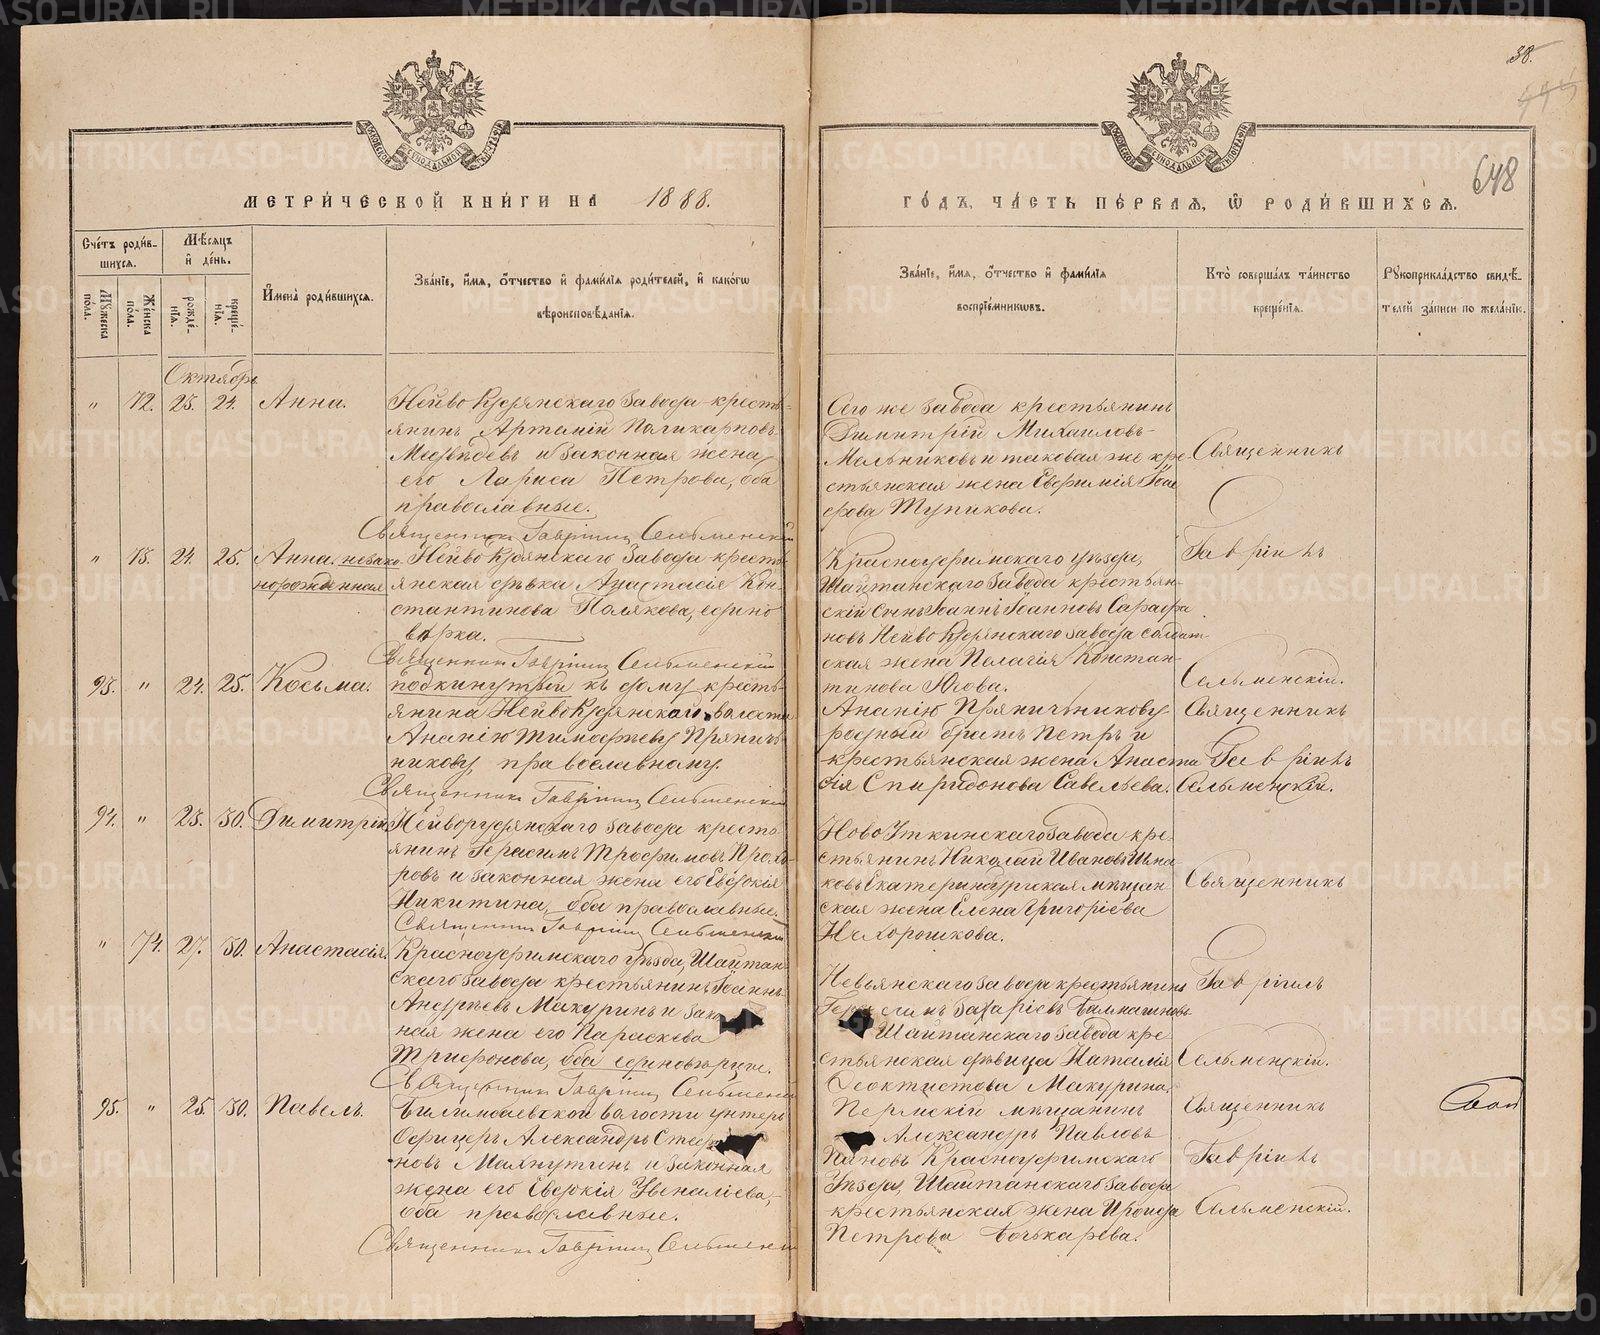 38.
648
МЕТРИЧЕСКОЙ КНИГИ НА 1888.
ГОДЪ, ЧАСТЬ ПЕРВАЯ, Ѡ РОДИВШИХСЯ.
Счетъ родив-
шихся.
Мѣсяцъ
и день.
Мужеска пола.
Женска пола.
рожде-
нія.
креще-
нія.
Имена родившихся.
Званіе, имя, отчество и фамилія родителей, и какого
вѣроисповѣданія.
Званіе, имя, отчество и фамилія
воспріемниковъ.
Кто совершалъ таинство
крещенія.
Рукоприкладство свидѣ-
телей записи по желанію.
Октябрь
" 72. 23. 24. Анна.
Нейво Рудянскаго завода кресть-
янинъ Артемій Поликарповъ
Медвѣдевъ и законная жена
его Лариса Петрова, оба
православные.
Священникъ Гавріилъ Сельменскій
Сего же завода крестьянинъ
Димитрій Михаиловъ
Мельниковъ и таковая же кре
стьянская жена Евфимія
Тупикова.
Священникъ
Гавріилъ
Сельменскій.
" 73. 24. 25. Анна. незако-
норожденная
Нейво Рудянскаго Завода кресть-
янская дѣвка Анастасія Кон-
стантинова Полякова, едино
вѣрка.
Священникъ Гавріилъ Сельменскій
Красноуфимскаго уѣзда,
Шайтанскаго завода крестьян-
скій сынъ Іоаннъ Іоанновъ Сарафа
новъ Нейво Рудянскаго завода солдат
ская жена Пелагія Констан-
тинова Югова.
93. " 24. 25. Косьма.
Подкинутый къ дому кресть-
янина Нейво Рудянской волости
Ананію Тимофѣеву Прянич-
никову, православному.
Священникъ Гавріилъ Сельменскій
Ананію Пряничникову
родный братъ Петръ и
крестьянская жена Анаста
сія Спиридонова Савельева.
Священникъ
Гавріилъ
Сельменскій.
94. " 23. 30. Димитрій
Нейворудянскаго завода кресть-
янинъ Герасимъ Трофимовъ Прохо-
ровъ и законная жена его Евдокія
Никитина, оба православные.
Священникъ Гавріилъ Сельменскій
Ново Уткинскаго завода кре-
стьянинъ Николай Ивановъ
ковъ Екатеринбургская мѣщан
ская жена Елена Григоріева
Нехорошкова.
Священникъ
Гавріилъ
Сельменскій.
" 74. 27. 30. Анастасія.
Красноуфимскаго уѣзда, Шайтан-
скаго завода крестьянинъ Іоаннъ
Андреевъ Макуринъ и зако
ная жена его Параскева
Трифонова, оба единовѣрцы.
Священникъ Гавріилъ Сельменскій
Невьянскаго завода крестьянинъ
Герасимъ Захаріевъ
Шайтанскаго завода кре-
стьянская дѣвица Наталія
Феоктистова Макурина.
95. " 25. 30. Павелъ.
Билимбаевской волости унтеръ
Офицеръ Александръ Стефа
новъ Малпутинъ и законная
жена его Евдокія Увеналіева,
оба православные.
Священникъ Гавріилъ Сельменскій
Пермскій мѣщанинъ
Александръ Павловъ
Пановъ Красноуфимскаго
Уѣзда, Шайтанскаго завода
крестьянская жена Ираида
Петрова Бочкарева.
Священникъ
Гавріилъ
Сельменскій.